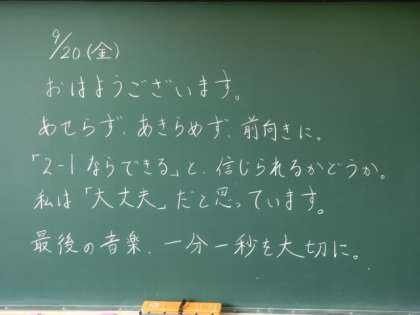 9/20(金)
おはようございます。
あせらず、あきらめず、前向きに。
「2-1ならできる」と、信じられるかどうか。
私は「大丈夫」だと思っています。
最後の音楽、一分一秒を大切に。